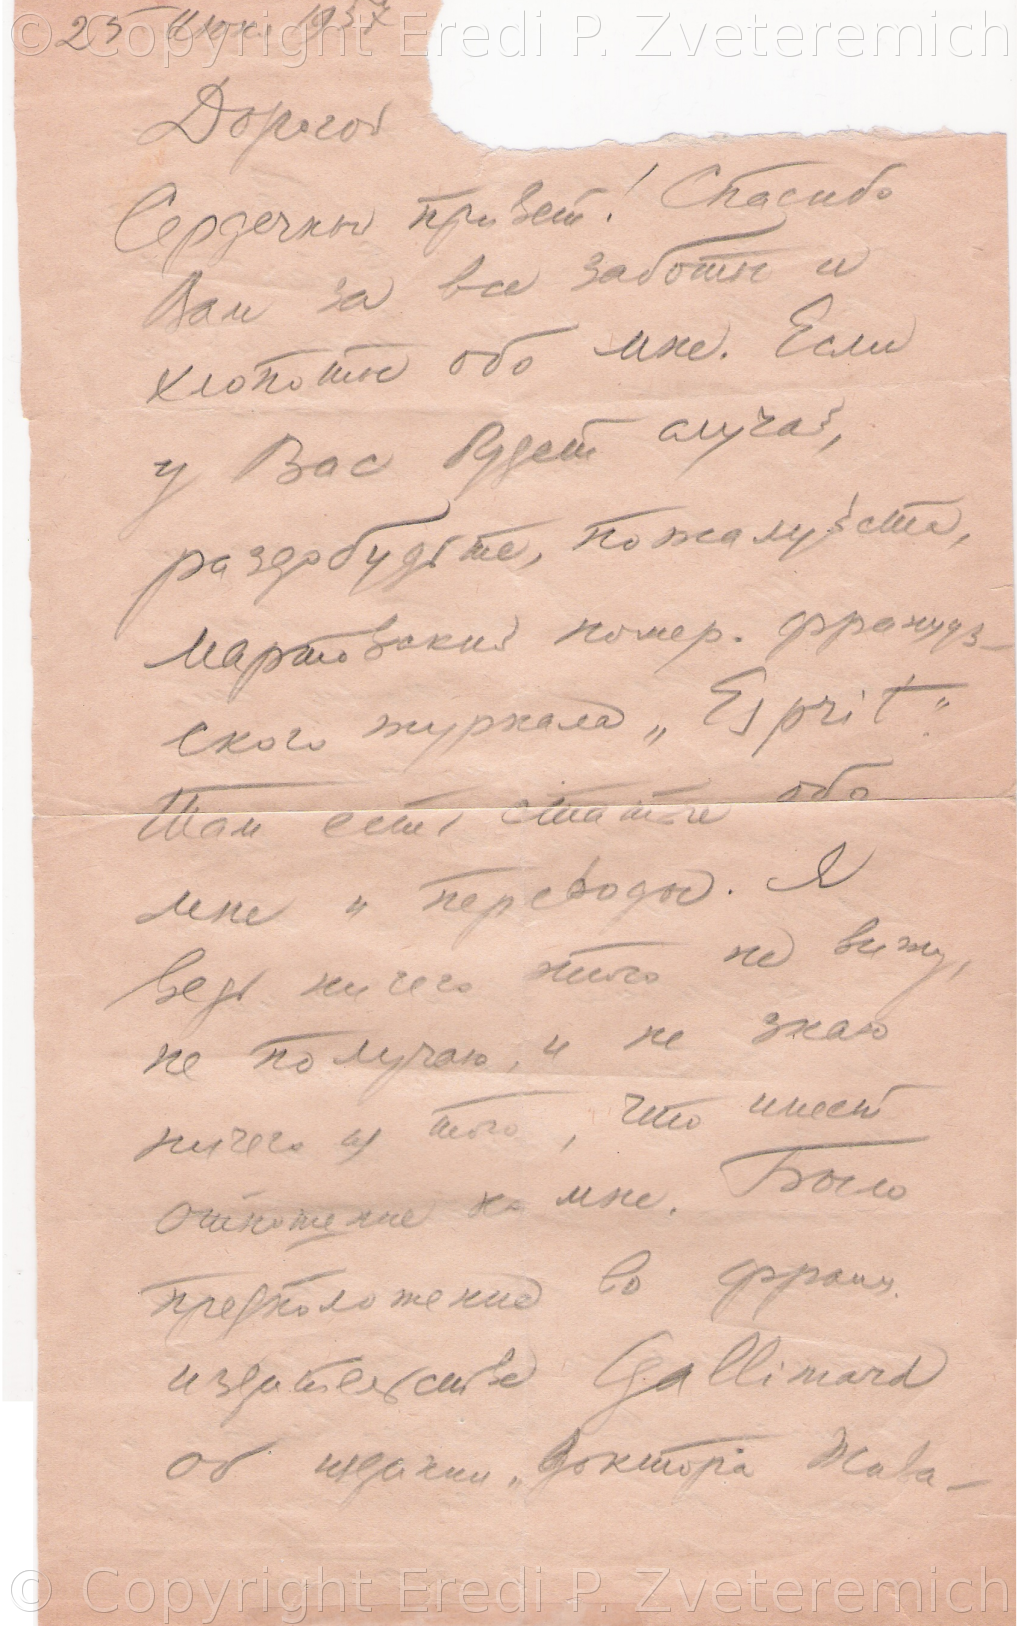 © Copyright Eredi P. Zveteremich
25 Июн. 1957
Дорогой
Сердечный привет! Спасибо
Вам за все заботы и
хлопоты обо мне. Если
у Вас будет случай,
раздобудьте, пожалуйста,
мартовский номер. француз-
ского журнала „Esprit“.
Там есть статьи обо
мне и переводы. Я
ведь ничего этого не вижу,
не получаю, и не знаю
ничего из того, что имеет
отношение ко мне. Было
предположение во франц.
издательстве Gallimard
об издании „Доктора Жива-
© Copyright Eredi P. Zveteremich